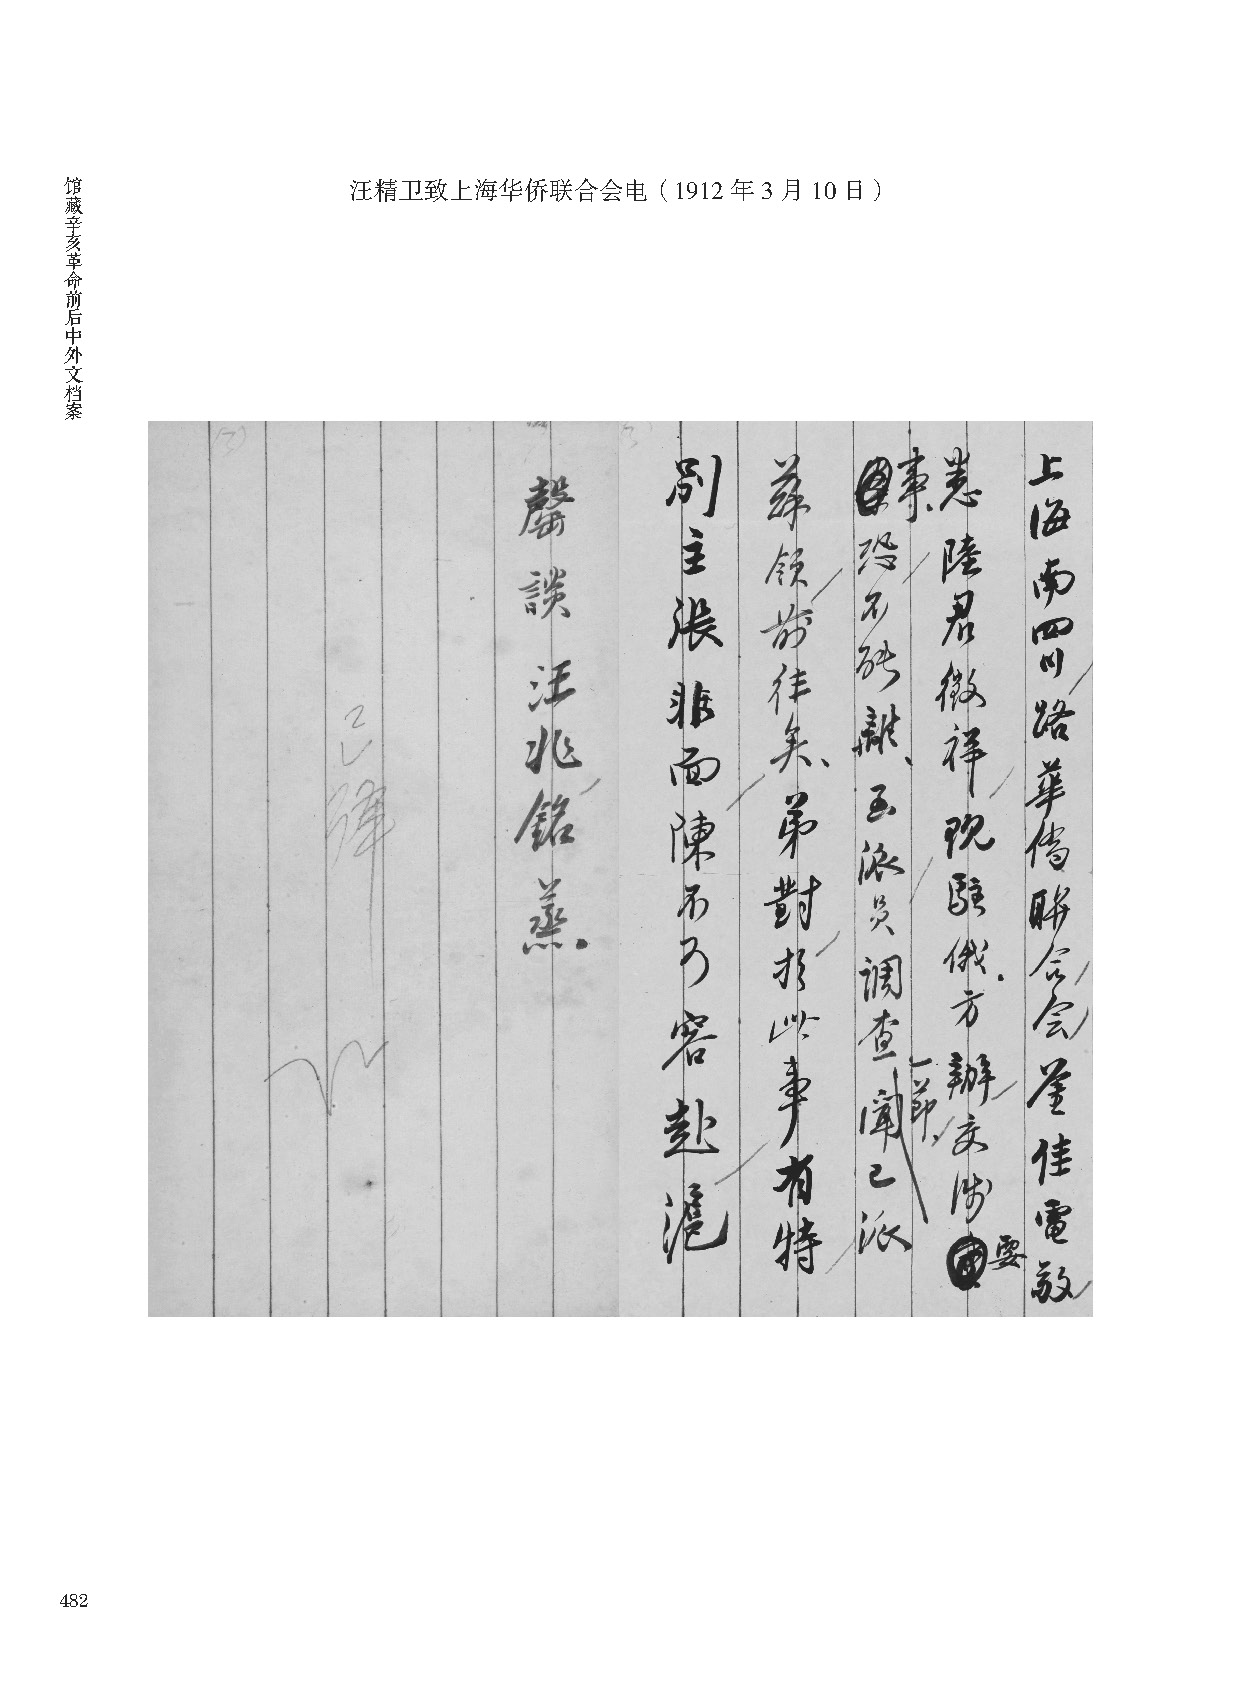 馆藏辛亥革命前后中外文档案
汪精卫致上海华侨联合会电（1912 年 3 月 10 日）
上海南四川路華僑聯合会鉴佳電敬
悉陸君徵祥現駐俄方辦交涉要
事恐不能離至派員調查一節聞已派
蘇領前往矣弟對於此事有特
別主張非面陳不可容赴滬
罄談汪兆銘蒸
已譯
482